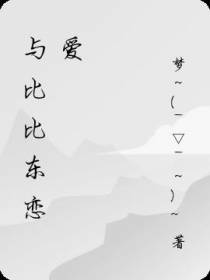 与比比东恋
爱
梦~(￣▽￣~)~ 著